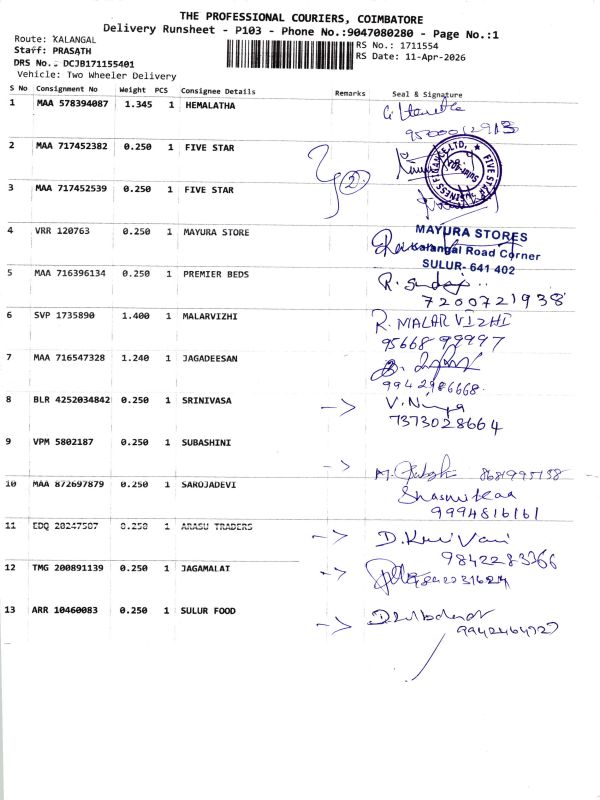 THE PROFESSIONAL COURIERS, COIMBATORE
Delivery Runsheet - P103 - Phone No.:9047080280 - Page No.:1
Route: KALANGAL
Staff: PRASATH
DRS No.: DCJB171155401
Vehicle: Two Wheeler Delivery
RS No.: 1711554
RS Date: 11-Apr-2026
S No Consignment No Weight PCS Consignee Details Remarks Seal & Signature
1 MAA 578394087 1.345 1 HEMALATHA
9500012913
2 MAA 717452382 0.250 1 FIVE STAR
2
FIVE STAR BUSINESS FINANCE LTD,
3 MAA 717452539 0.250 1 FIVE STAR
4 VRR 120763 0.250 1 MAYURA STORE
MAYURA STORES
Kalangal Road Corner
SULUR- 641 402
5 MAA 716396134 0.250 1 PREMIER BEDS
7200721938
6 SVP 1735890 1.400 1 MALARVIZHI
R. MALAR VIZHI
95668 99997
7 MAA 716547328 1.240 1 JAGADEESAN
9942986668.
8 BLR 4252034842 0.250 1 SRINIVASA
-> V.
7373028664
9 VPM 5802187 0.250 1 SUBASHINI
->
10 MAA 872697879 0.250 1 SAROJADEVI
9994816161
11 EDQ 20247507 0.250 1 ARASU TRADERS
-> D.
9842283766
12 TMG 200891139 0.250 1 JAGAMALAI
->
13 ARR 10460083 0.250 1 SULUR FOOD
->